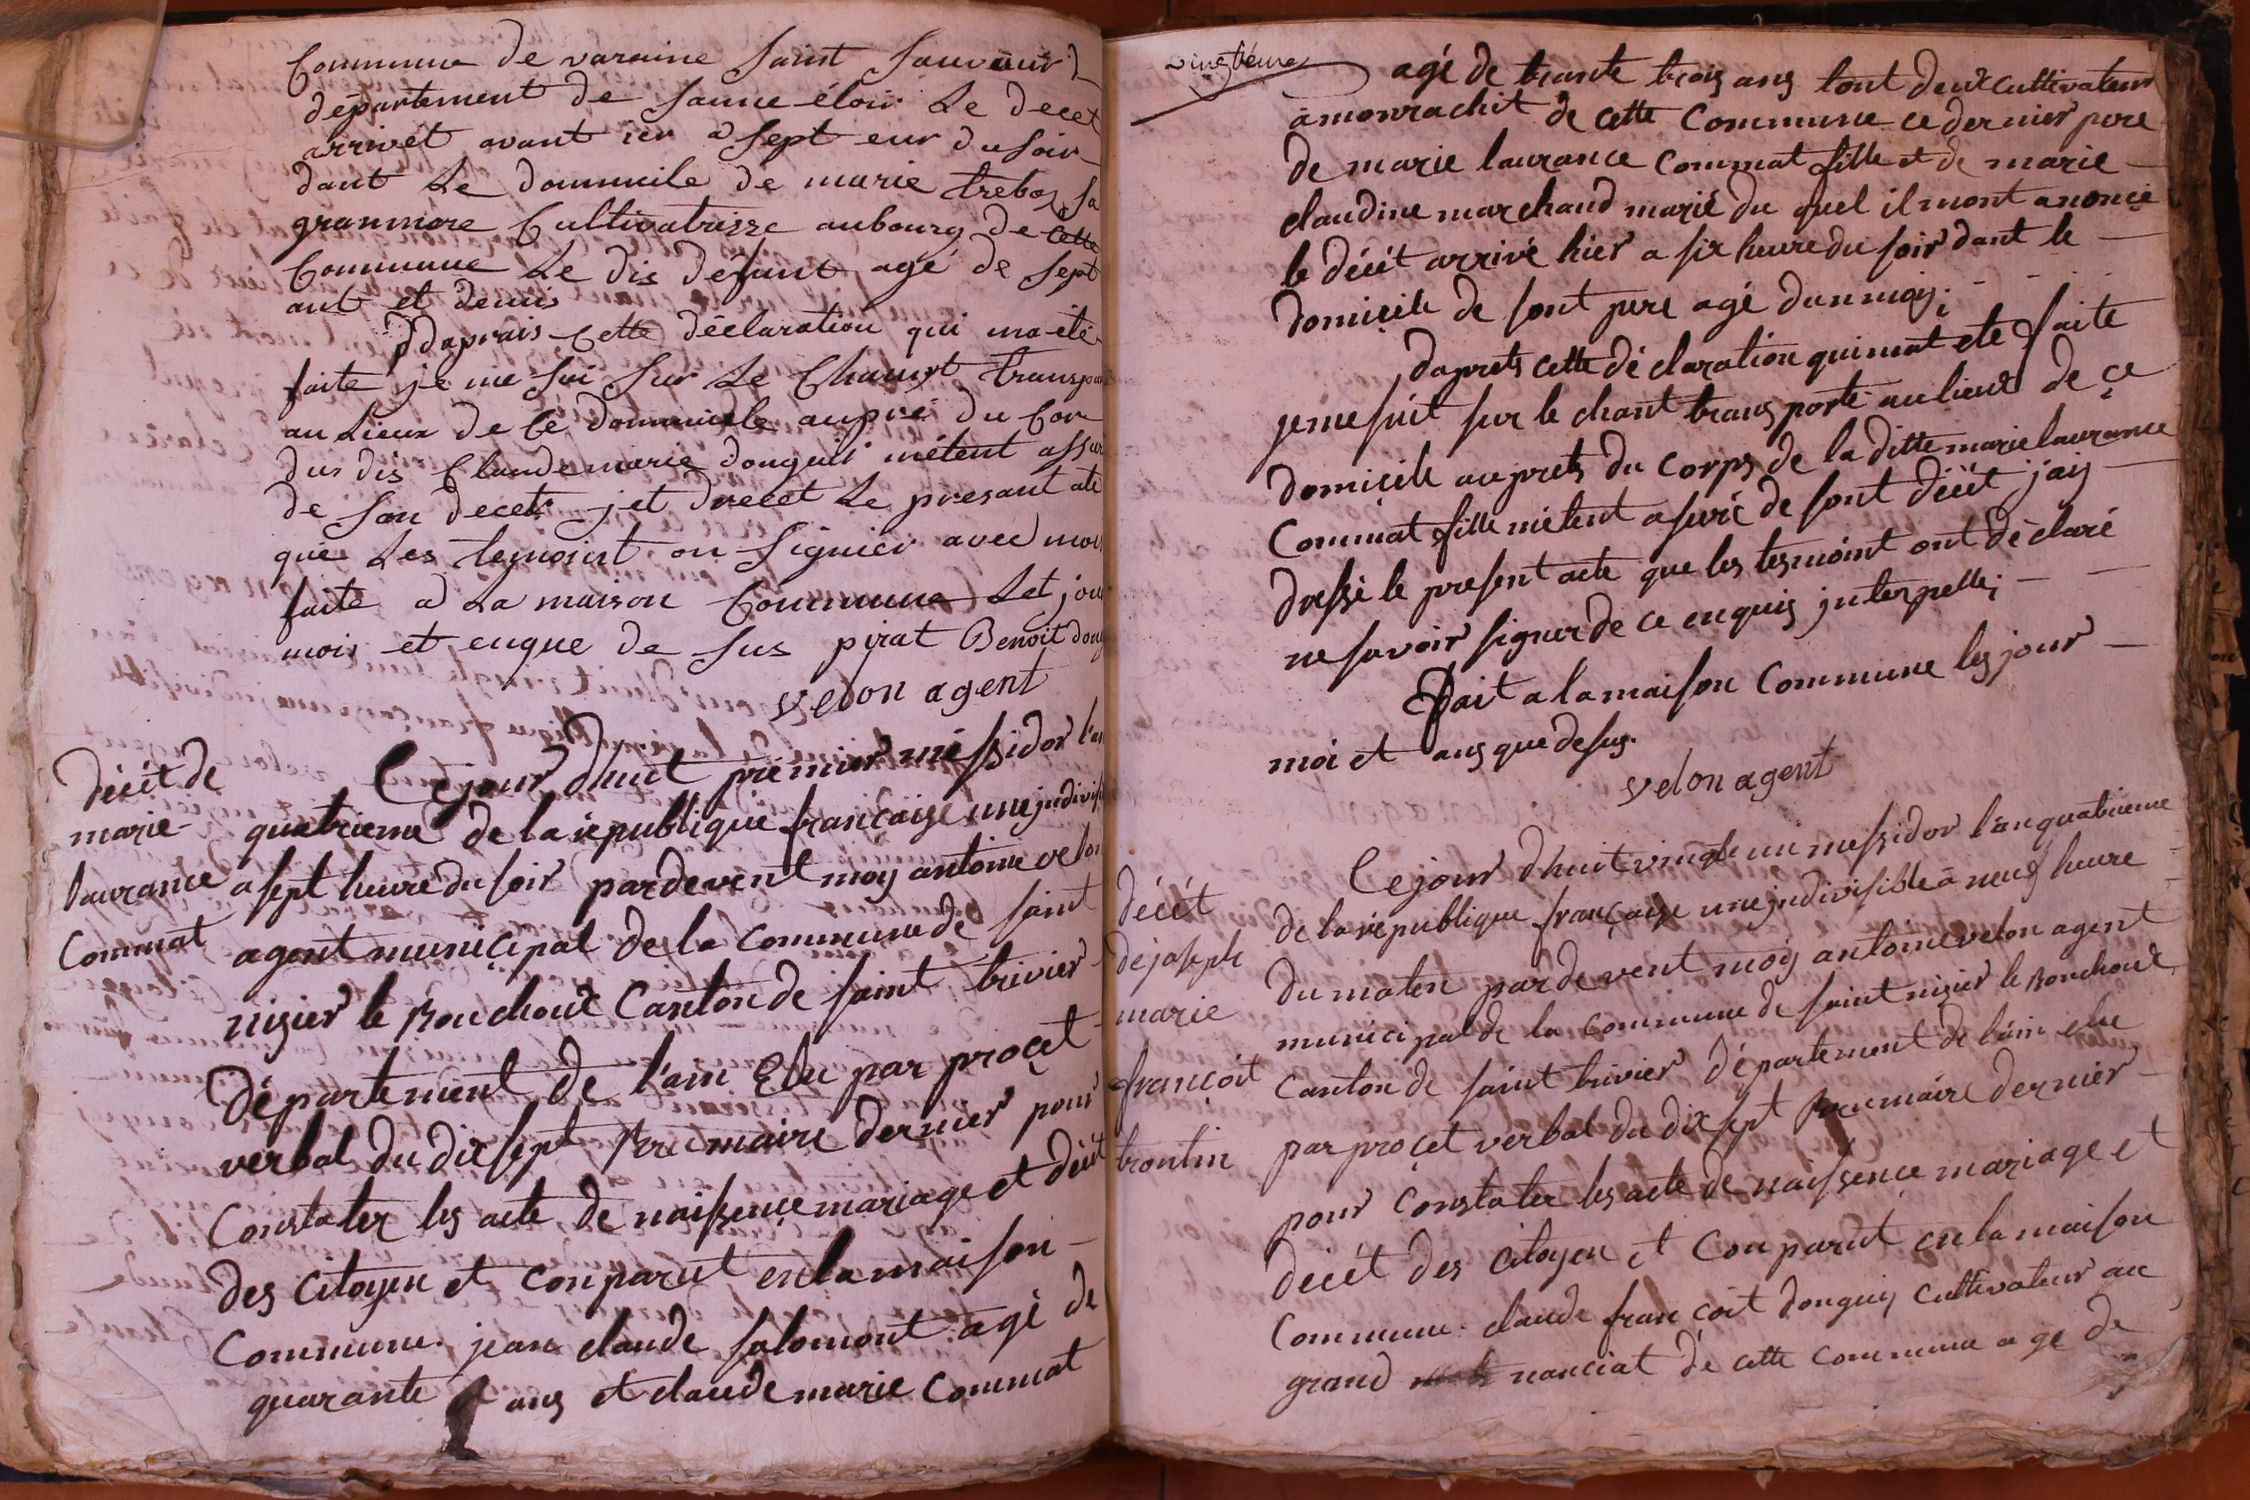 Commune de varaine saint sauveur
département de saune éloir Le decet
arrivet avant ier a sept eur du soir
dant Le dommicile de marie trebos sa
granmore Cultivatrisse aubourg de cette
Commune Le dis défunt agé de sept
ant et demis
Ddaprais Cette déclaration qui ma été
faite je me sui sur Le Chamt transpo
au Lieux de Ce dommicile aupré du Cor
dus dis Claude marie donguis métent assur
de son decet jet drecet Le presant ate
que Les temoint on Signier avec moi
faite a La maison Commune Let jour
mois et enque de sus pirat Benoit dong
velon agent
décét de
marie
laurance
Commat
Ce jour dhuit premier messidor l'an
quatrieme de la republique française une jndivisi
a sept heure du soir pardevent moy antoine velon
agent municipal de la commune de saint
nisier le Bouchoux Canton de saint trivier
Département de l'ain Elu par procet
verbal du dix sept Brumaire dernier pour
Constater les acte de naissence mariage et décét
des citoyen et conparut en la maison
Commune. jean claude salomont agé de
quarante ans et claude marie Commat
vingtiéme
agé de trante trois ans tout deux cultivateur
a monrachit de cette Commune ce dernier pere
de marie laurance Commat fille et de marie
claudine marchand marié du quel il mont anoncé
le décét arrivé hier a six heure du soir dant le
domicile de sont pere agé dun mois;
daprets cette dé claration qui mat ete faite
je me suit sur le chant trans porté au lieux de ce
domicile auprets du corps de la ditte marie laurance
Commat fille métent asuré de sont décét jais
dressé le present acte que les tesmoint ont déclaré
ne savoir signer de ce enquis jnterpelle;
Fait a la maison Commune les jour
moi et ans que desus.
velon agent
décét
de joseph
marie
françoit
trontin
Ce jour dhuit vingte un messidor l'an quatrieme
de la république française une jndivisible a neuf heure
du maten par de vent moy antoine velon agent
municipal de la commune de saint nisier le Bouchoux
Canton de saint trivier département de lain elu
par procet verbal du dix sept Brumaire dernier
pour Constater les acte de naissence mariage et
décét des citoyen et Conparut en la maison
Commune. claude françoit donguis cultivateur au
grand nanciat de cette commune agé de